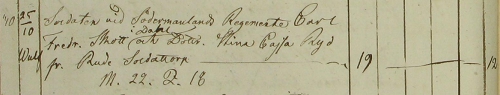 25/10 Soldaten vid Södermanlands Regemente Carl
Fredr. Skott och Dottr. Stina Cajsa Ryd
fr. Rude Soldattorp 19 12
M. 22. F. 18